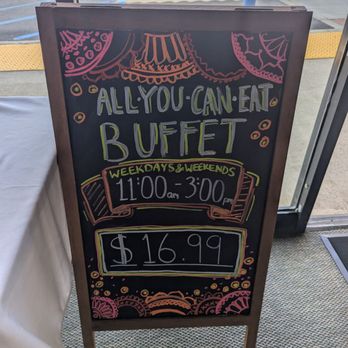 ALL·YOU·CAN·EAT
BUFFET
WEEKDAYS & WEEKENDS
11:00am - 3:00pm
$16.99